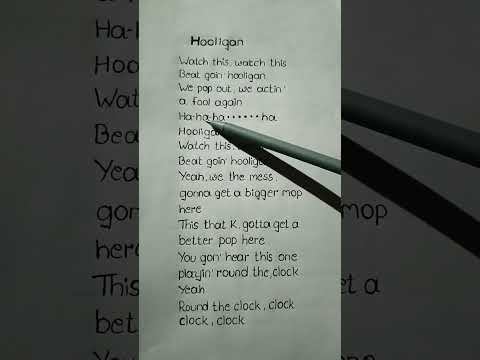 Hooligan
Watch this, watch this
Beat goin' hooligan
We pop out, we actin'
a fool again
Ha-ha-ha......ha
Hooligan
Watch this,
Beat goin'
Yeah, we the mess,
gonna get a bigger mop
here
This that K, gotta get a
better pop here
You gon' hear this one
playin' round the clock
Yeah
Round the clock, clock
clock, clock